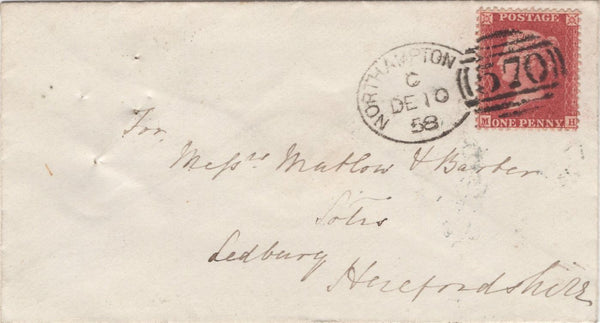 POSTAGE
570
M ONE PENNY H
NORTHAMPTON
C
DE 10
58
For
Messrs Matlow & Barber
Solrs
Ledbury
Herefordshire